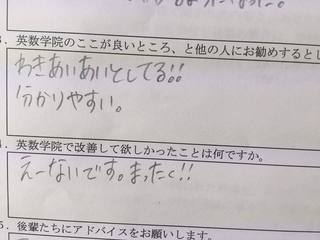 3．英数学院のここが良いところ、と他の人にお勧めするとし
わきあいあいとしてる!!
分かりやすい。
4．英数学院で改善して欲しかったことは何ですか。
えーないです。まったく!!
5．後輩たちにアドバイスをお願いします。